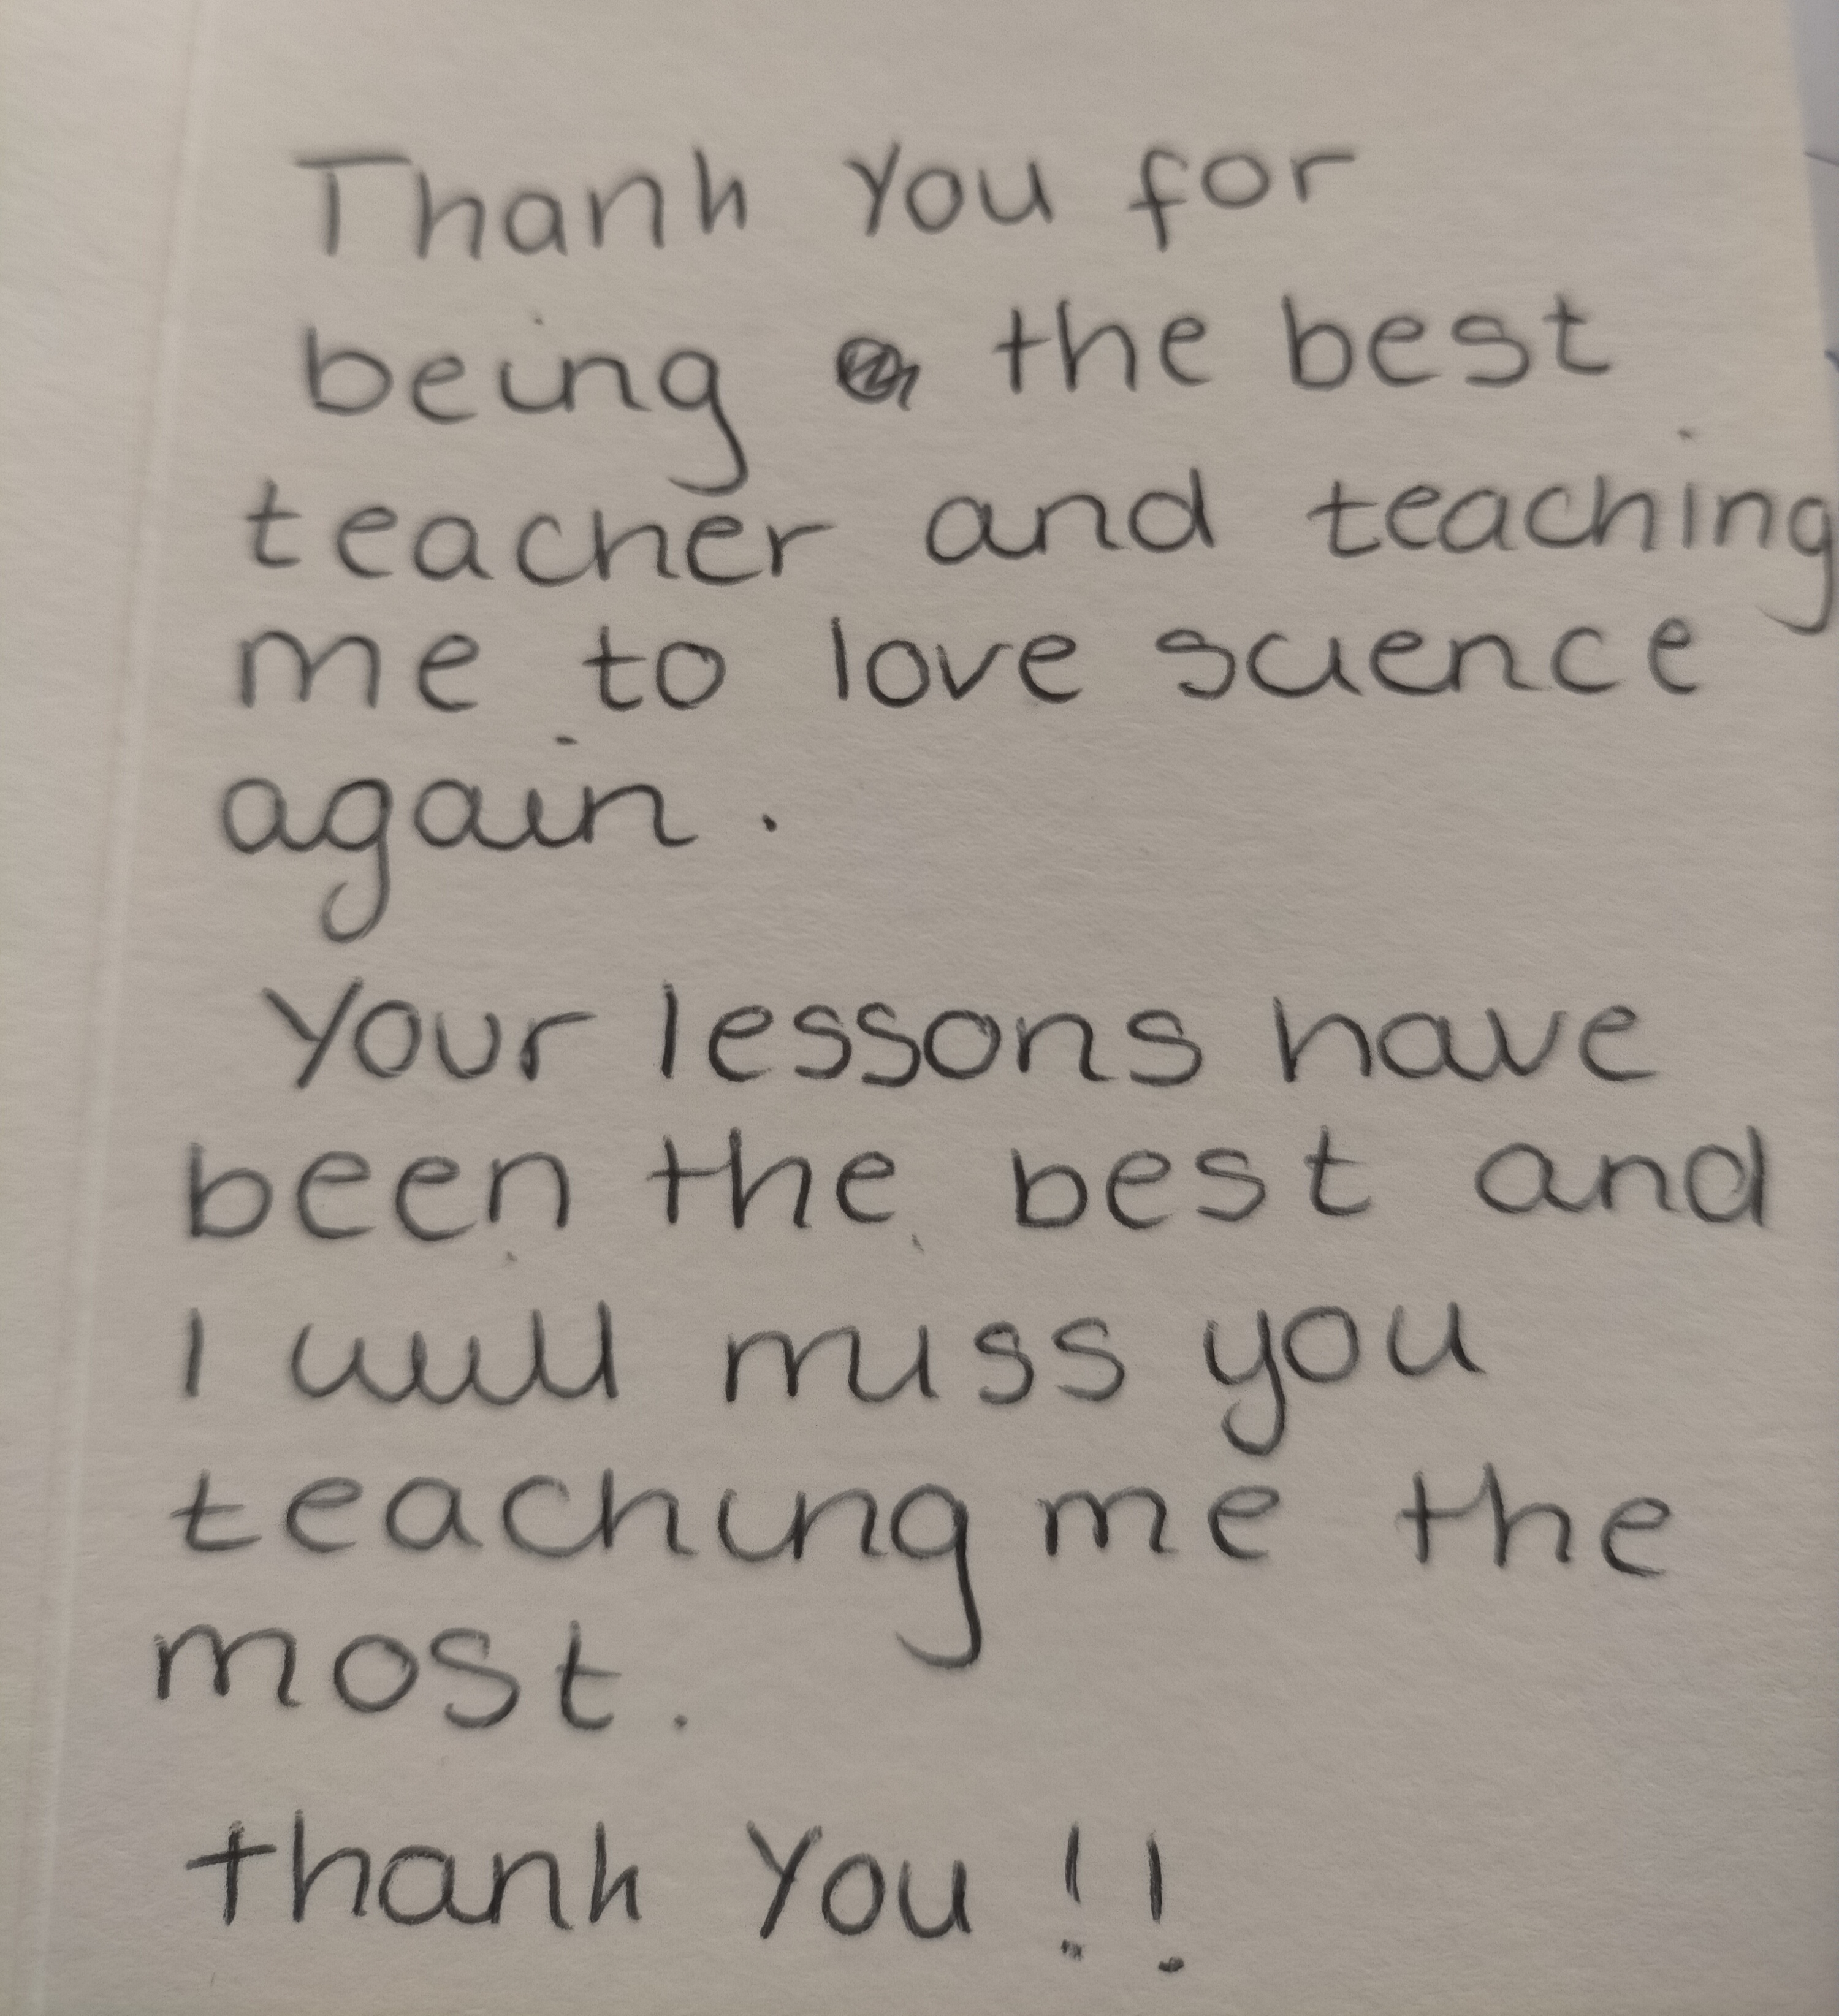 Thank You for
being the best
teacher and teaching
me to love science
again.
Your lessons have
been the best and
I will miss you
teaching me the
most.
thank You !!